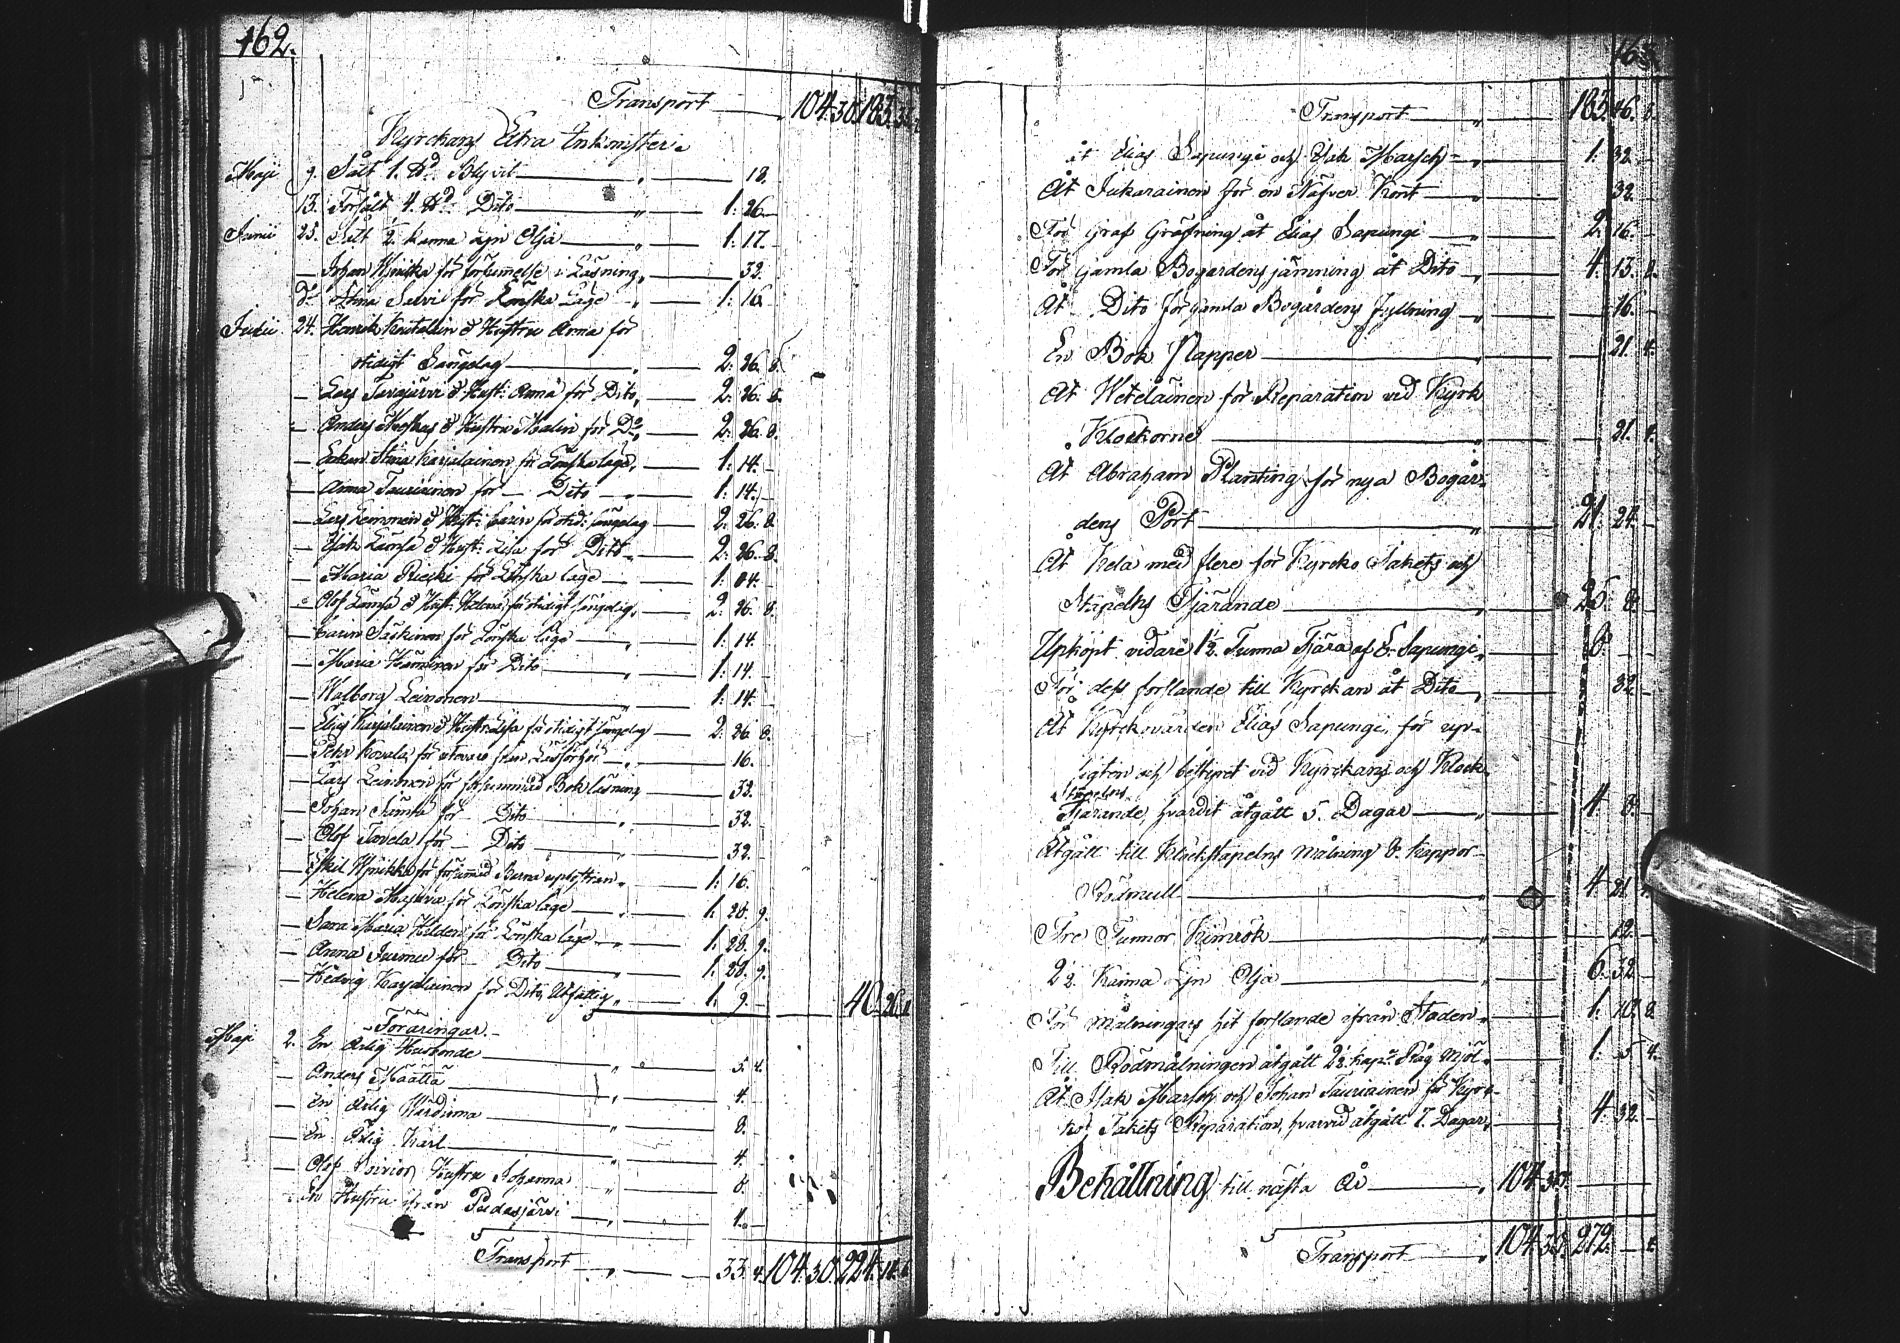 162.
Transport 104. 30. 183.
Kyrckans Extra Inkomster.
Maji 9. Sålt 1. ℔d. Blyvit 18.
13. Försålt 4. ℔d. Dito 1: 26.
Junii 25. Sålt 2. kanna Lijn Olja 1: 17.
Johan för försummelse i Läsning 32.
Do. Anna för Lönska Läge 1: 16.
Julii 24. Henrik & Hustru Anna för
otidigt Sängelag 2: 26. 8.
Lars & Hust: Anna för Dito 2: 26. 8.
Anders & Hustru Malin för Do. 2: 26. 8.
Stina Karjalainen för Lönska läge, 1: 14.
Anna Tauriainen för Dito 1: 14.
Lars Leinonen & Hust: Carin för otidi: sängelag 2: 26. 8.
Isak Lämsä & Hust: Lisa för Dito 2: 26. 8.
Maria för Lönska läge 1: 04.
Olof Lämsä & Hust: Helena för otidigt sängelag, 2: 26. 8.
Carin för Lönska läge 1: 14.
Maria för Dito 1: 14.
Walborg Leinonen 1: 14.
Elias Karjalainen & Hustru Lisa för otidigt sängelag 2: 26. 8.
Petter Kovala för utevaro från Läsförhör 16.
Lars Leinonen för försummad Bok läsning 32.
Johan Lämsä för Dito 32.
Olof Tavela för Dito 32.
Eskil för försumad Barna uplostran 1: 16.
Helena för Lönska läge 1: 28. 9.
Sara Maria för Lönska läge 1: 28. 9.
Anna för Dito 1: 28. 9.
Hedvig Karjalainen för Dito, Utfattig 1: 9. 40. 26.
Föräringar.
Maji 2. En Ärlig Husbonde 5. 4.
Anders Määttä 4.
En Ärlig Värdinna 8.
En Ärlig Karl 4.
Olof Hustru Johanna 8.
En Hustru ifrån Pudasjärvi 4.
Transport 33. 4. 104. 30. 224. 14.
163.
Transport 183. 46. 8.
åt Elias Sapungi och Isak Marsch 1: 32.
Åt Jukarainen för en Näfver Kont 32.
För Graf Gräfning åt Elias Sapungi 2: 16.
För gamla Bogårdens jämning åt Dito 4: 13. 8.
Åt Dito för gamla Bogårdens fyllning 16.
En Bok Papper 21. 4.
Åt Weteläinen för Reparation vid Kyrk
Klockorne 21. 4.
Åt Abraham Planting för nya Bogår-
dens Port 21. 24.
Åt Kela med flere för Kyrcko Takets och
Stapelns Tjärande 25. 8.
Upköpt vidare 1½. Tunna Tjära af E. Sapungi 8.
För dess forslande till Kyrckan åt Dito 32.
Åt Kyrckovärden Elias Sapungi, för up-
sigten och bestyret vid Kyrckans och Klock-
Stapelns
Tjärande, hvartil åtgått 5. Dagar 4. 8.
Åtgått till Klockstapelns målning 8. kappor
Rödmull 4. 21.
Tre Tunnor Kimrök 12.
2½. Kanna Lijn Olja 6. 32.
För målningens hit forslande ifrån Staden 1. 10. 8.
Till Rödmålningen åtgått 2½. kap:r Råg Mjöl 1: 5. 4.
Åt Isak Marsch och Johan Tauriainen för Kyrc-
ko Takets Reparation, hvarvid åtgått 7. Dagar, 4. 32.
Behållning till nästa År 104. 30.
Transport 104. 30. 272.